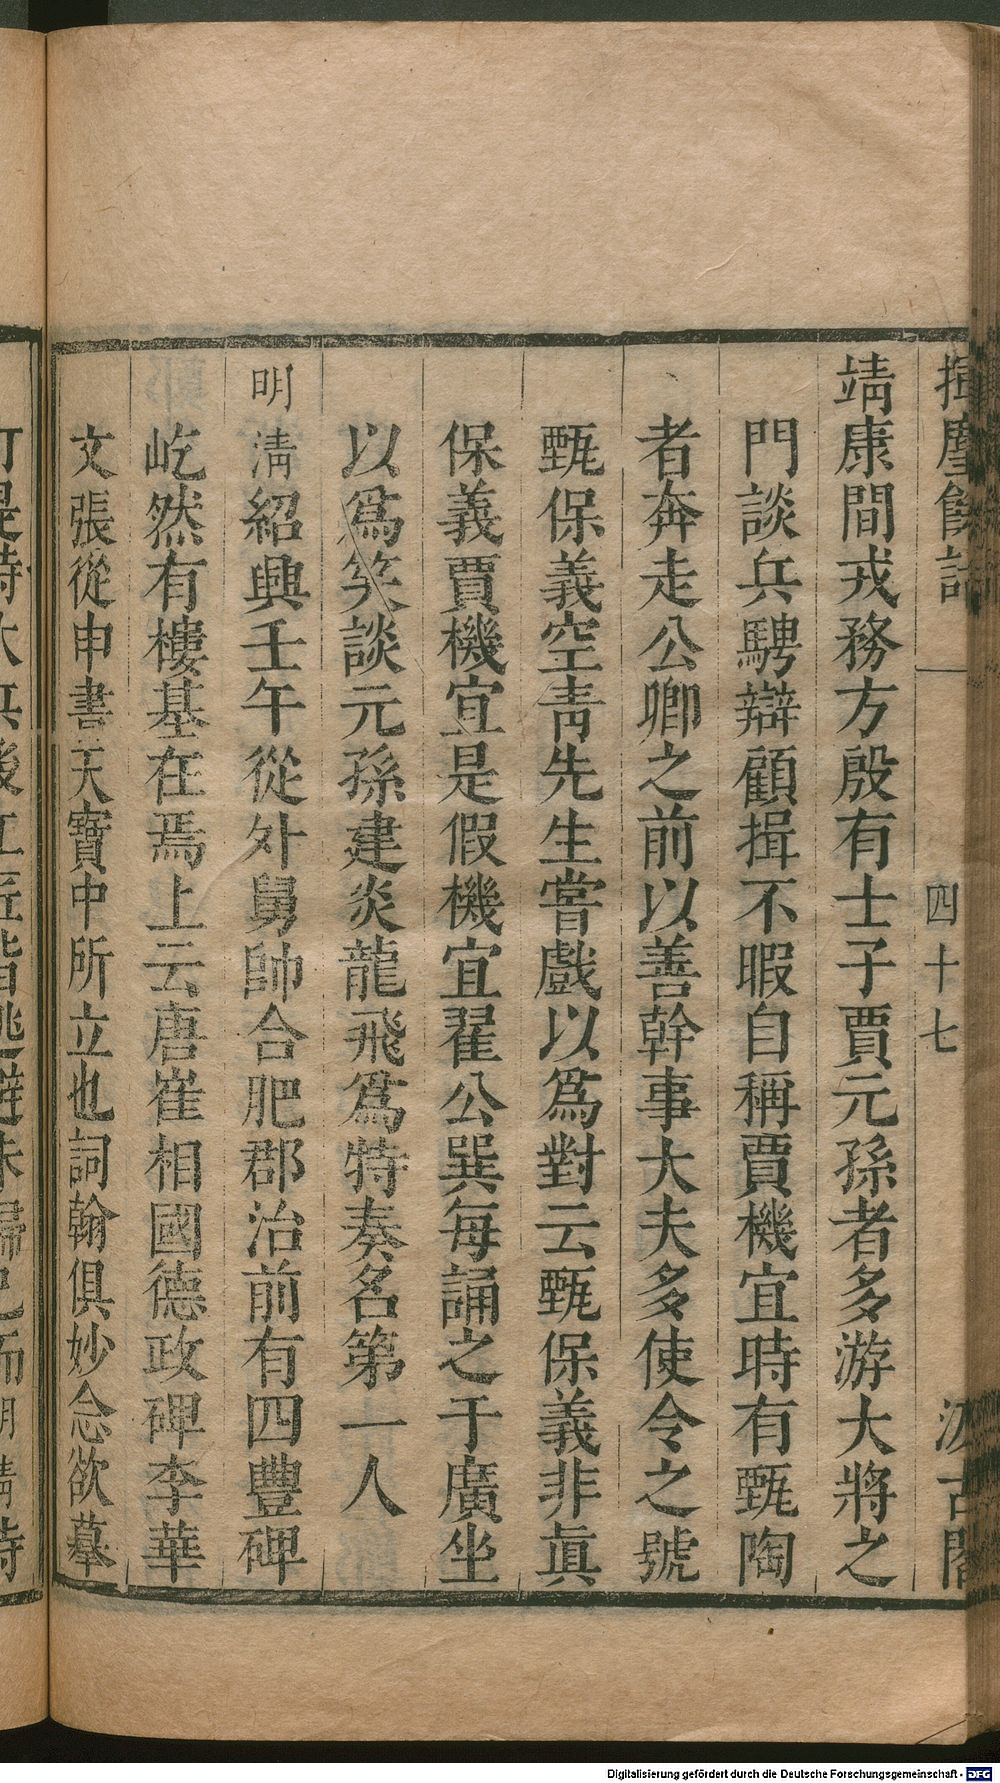 揮麈餘話
四十七
汲古閣
靖康間戎務方殷有士子賈元孫者多游大將之
門談兵騁辯顧揖不暇自稱賈機宜時有甄陶
者奔走公卿之前以善幹事大夫多使令之號
甄保義空靑先生嘗戲以爲對云甄保義非眞
保義賈機宜是假機宜翟公巽每誦之于廣坐
以爲笑談元孫建炎龍飛爲特奏名第一人
明淸紹興壬午從外舅帥合肥郡治前有四豐碑
屹然有樓基在焉上云唐崔相國德政碑李華
文張從申書天寶中所立也詞翰俱妙念欲摹
打是時大兵後工匠皆逃避未歸已而明淸待
Digitalisierung gefördert durch die Deutsche Forschungsgemeinschaft - DFG